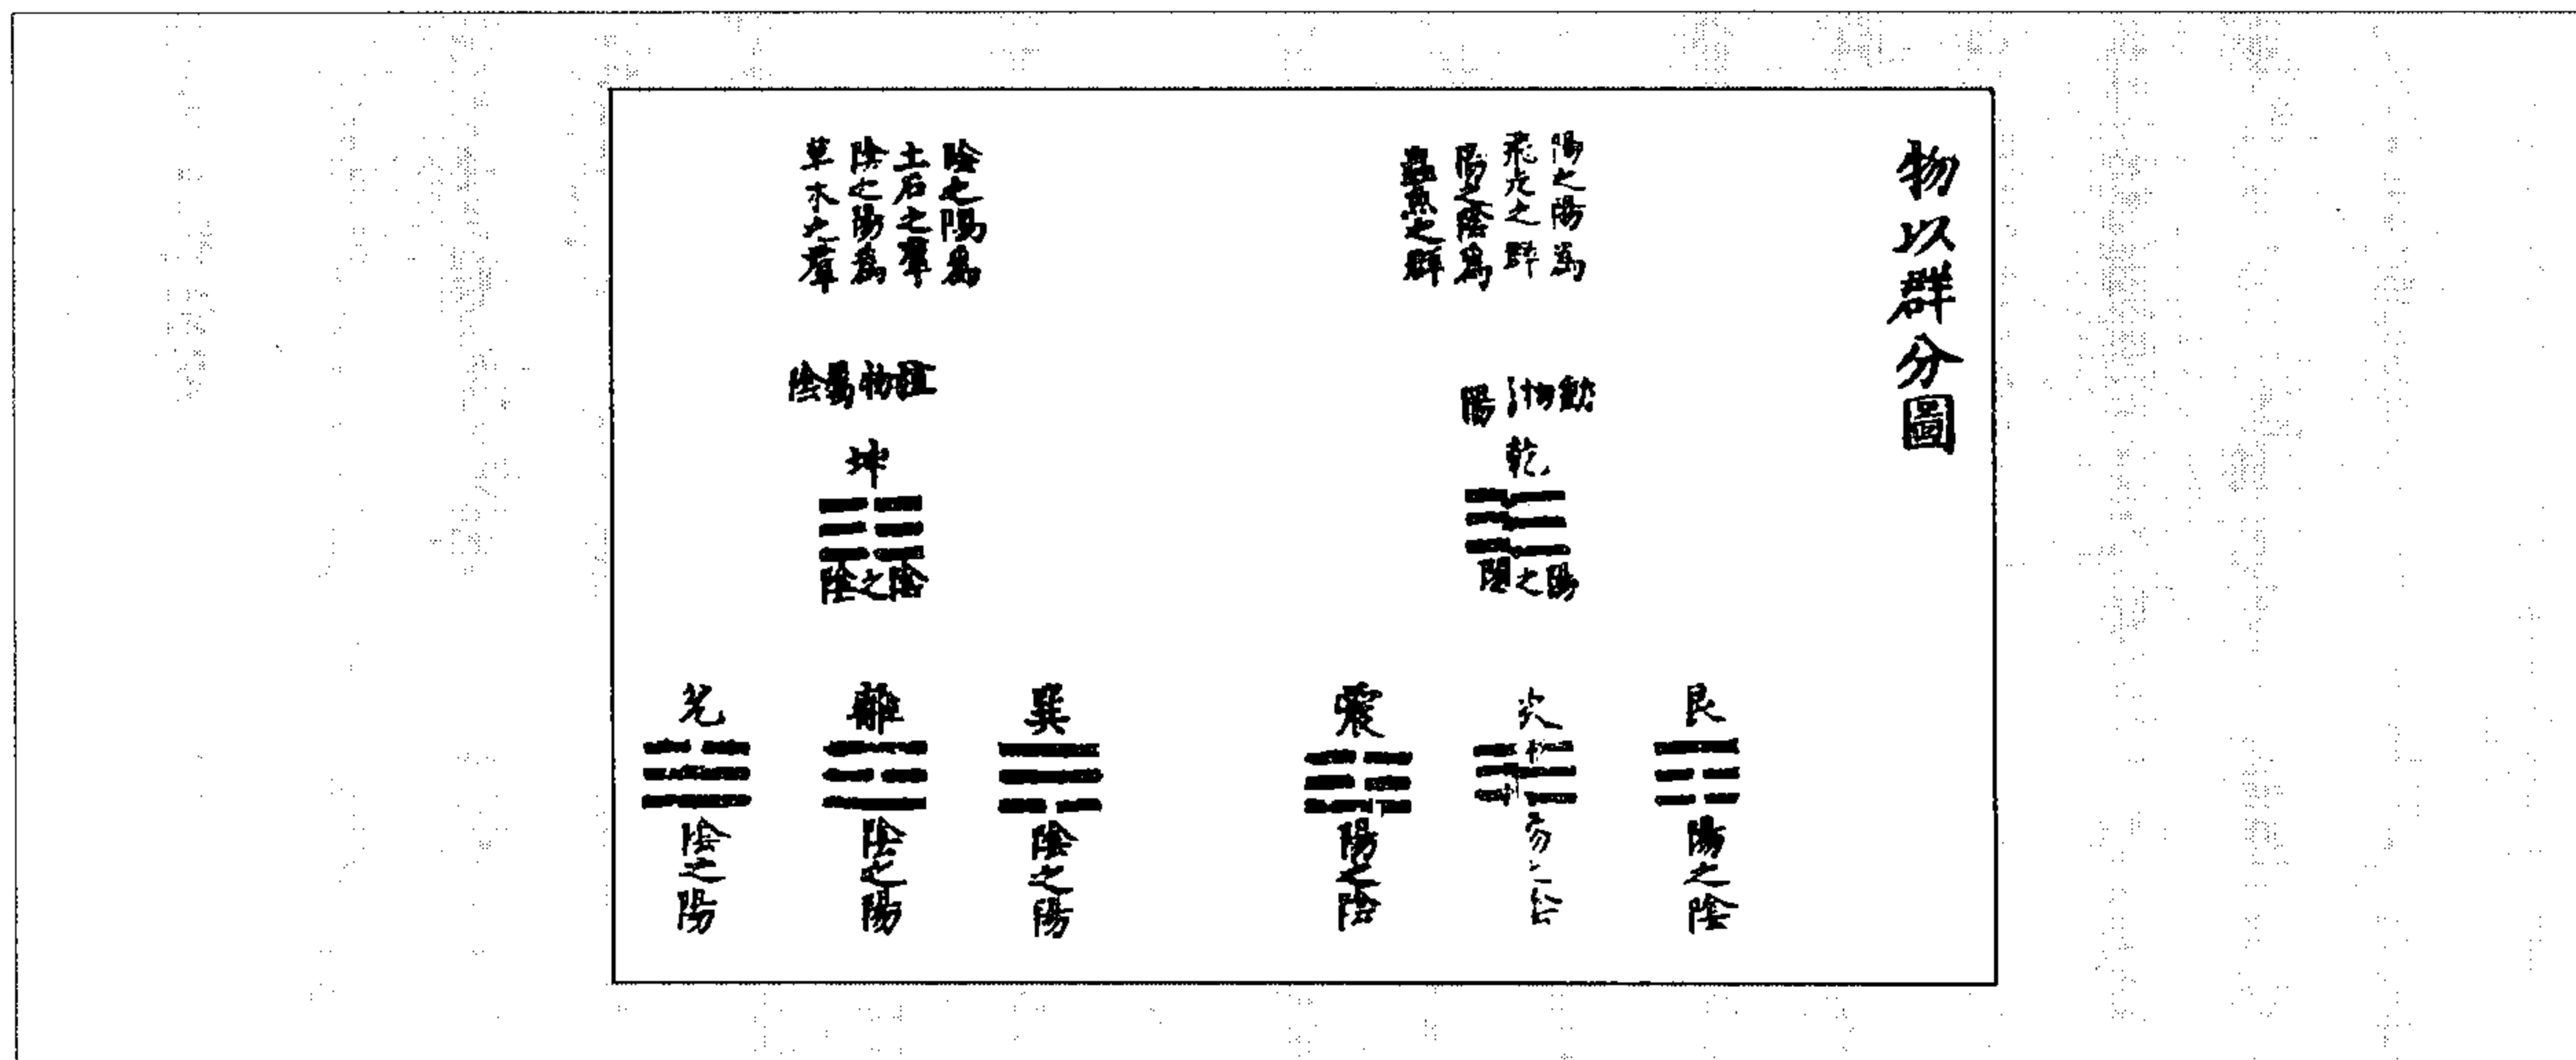 物以群分圖
陽之陽爲
飛走之群
陽之陰爲
蟲魚之群
動物陽
乾
陽之陽
艮
陽之陰
坎
震
陽之陰
陰之陽爲
土石之羣
陰之陽爲
草木之羣
植物屬陰
坤
陰之陰
巽
陰之陽
離
陰之陽
兌
陰之陽